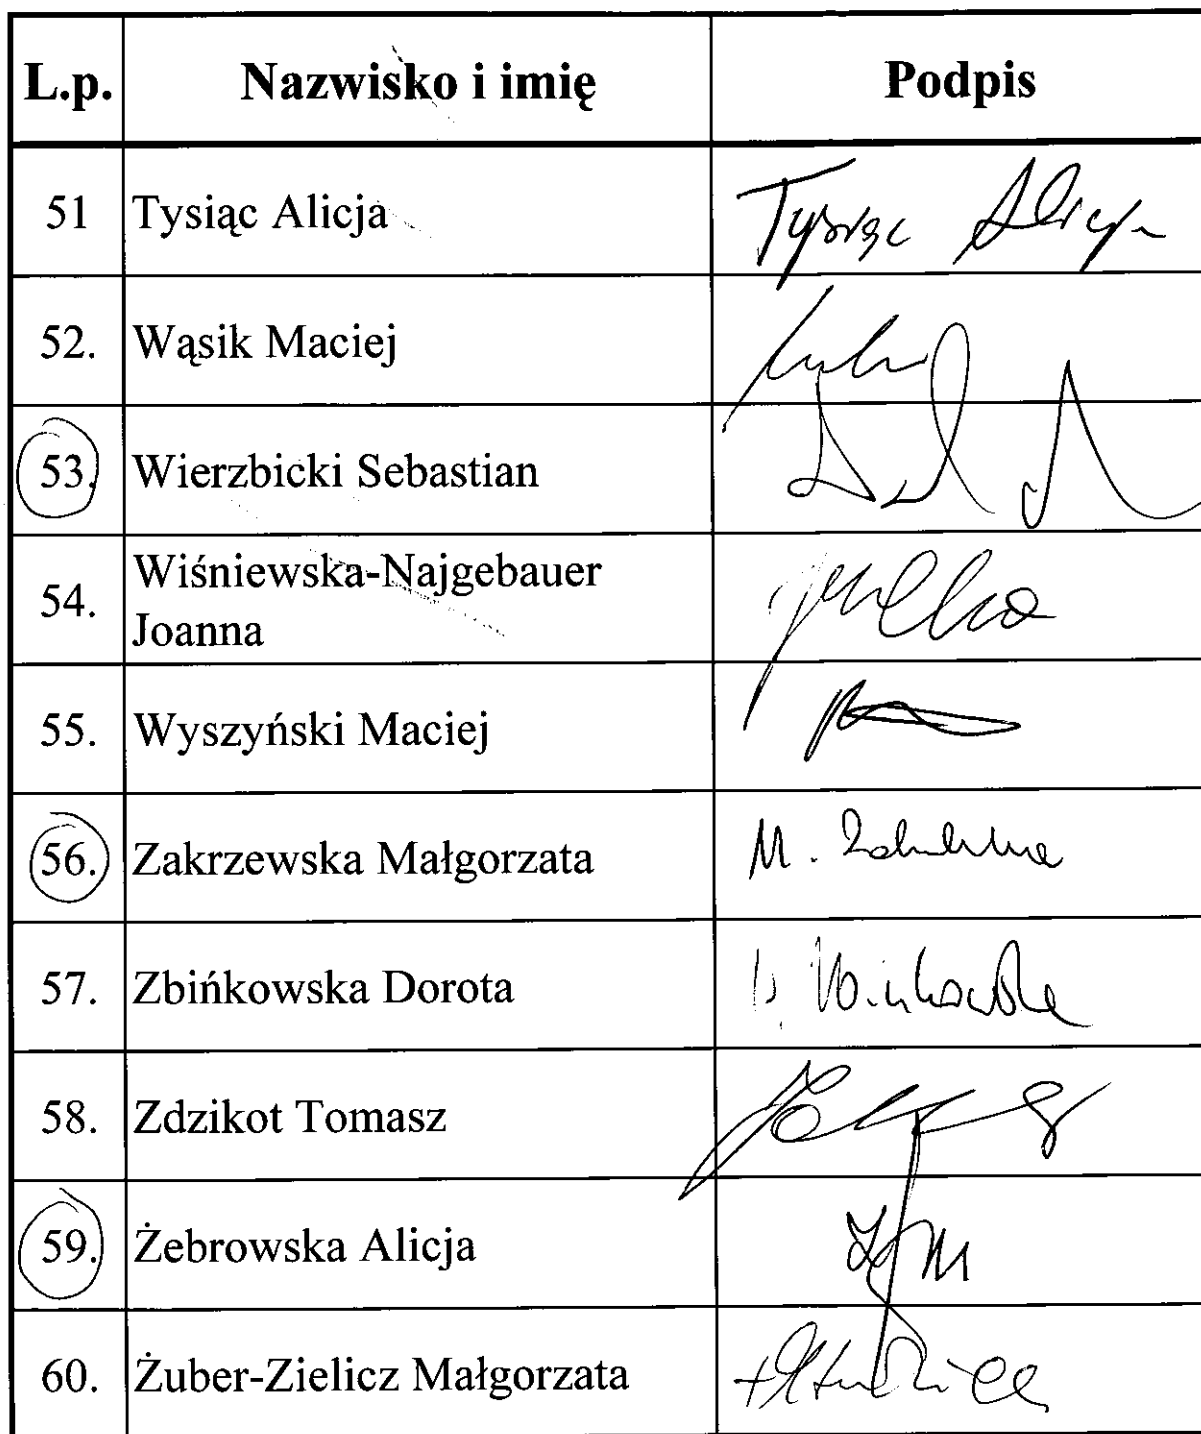 L.p. Nazwisko i imię Podpis
51 Tysiąc Alicja Tysiąc Alicja
52. Wąsik Maciej
53. Wierzbicki Sebastian
54. Wiśniewska-Najgebauer
Joanna
55. Wyszyński Maciej
56. Zakrzewska Małgorzata M.
57. Zbińkowska Dorota
58. Zdzikot Tomasz
59. Żebrowska Alicja
60. Żuber-Zielicz Małgorzata